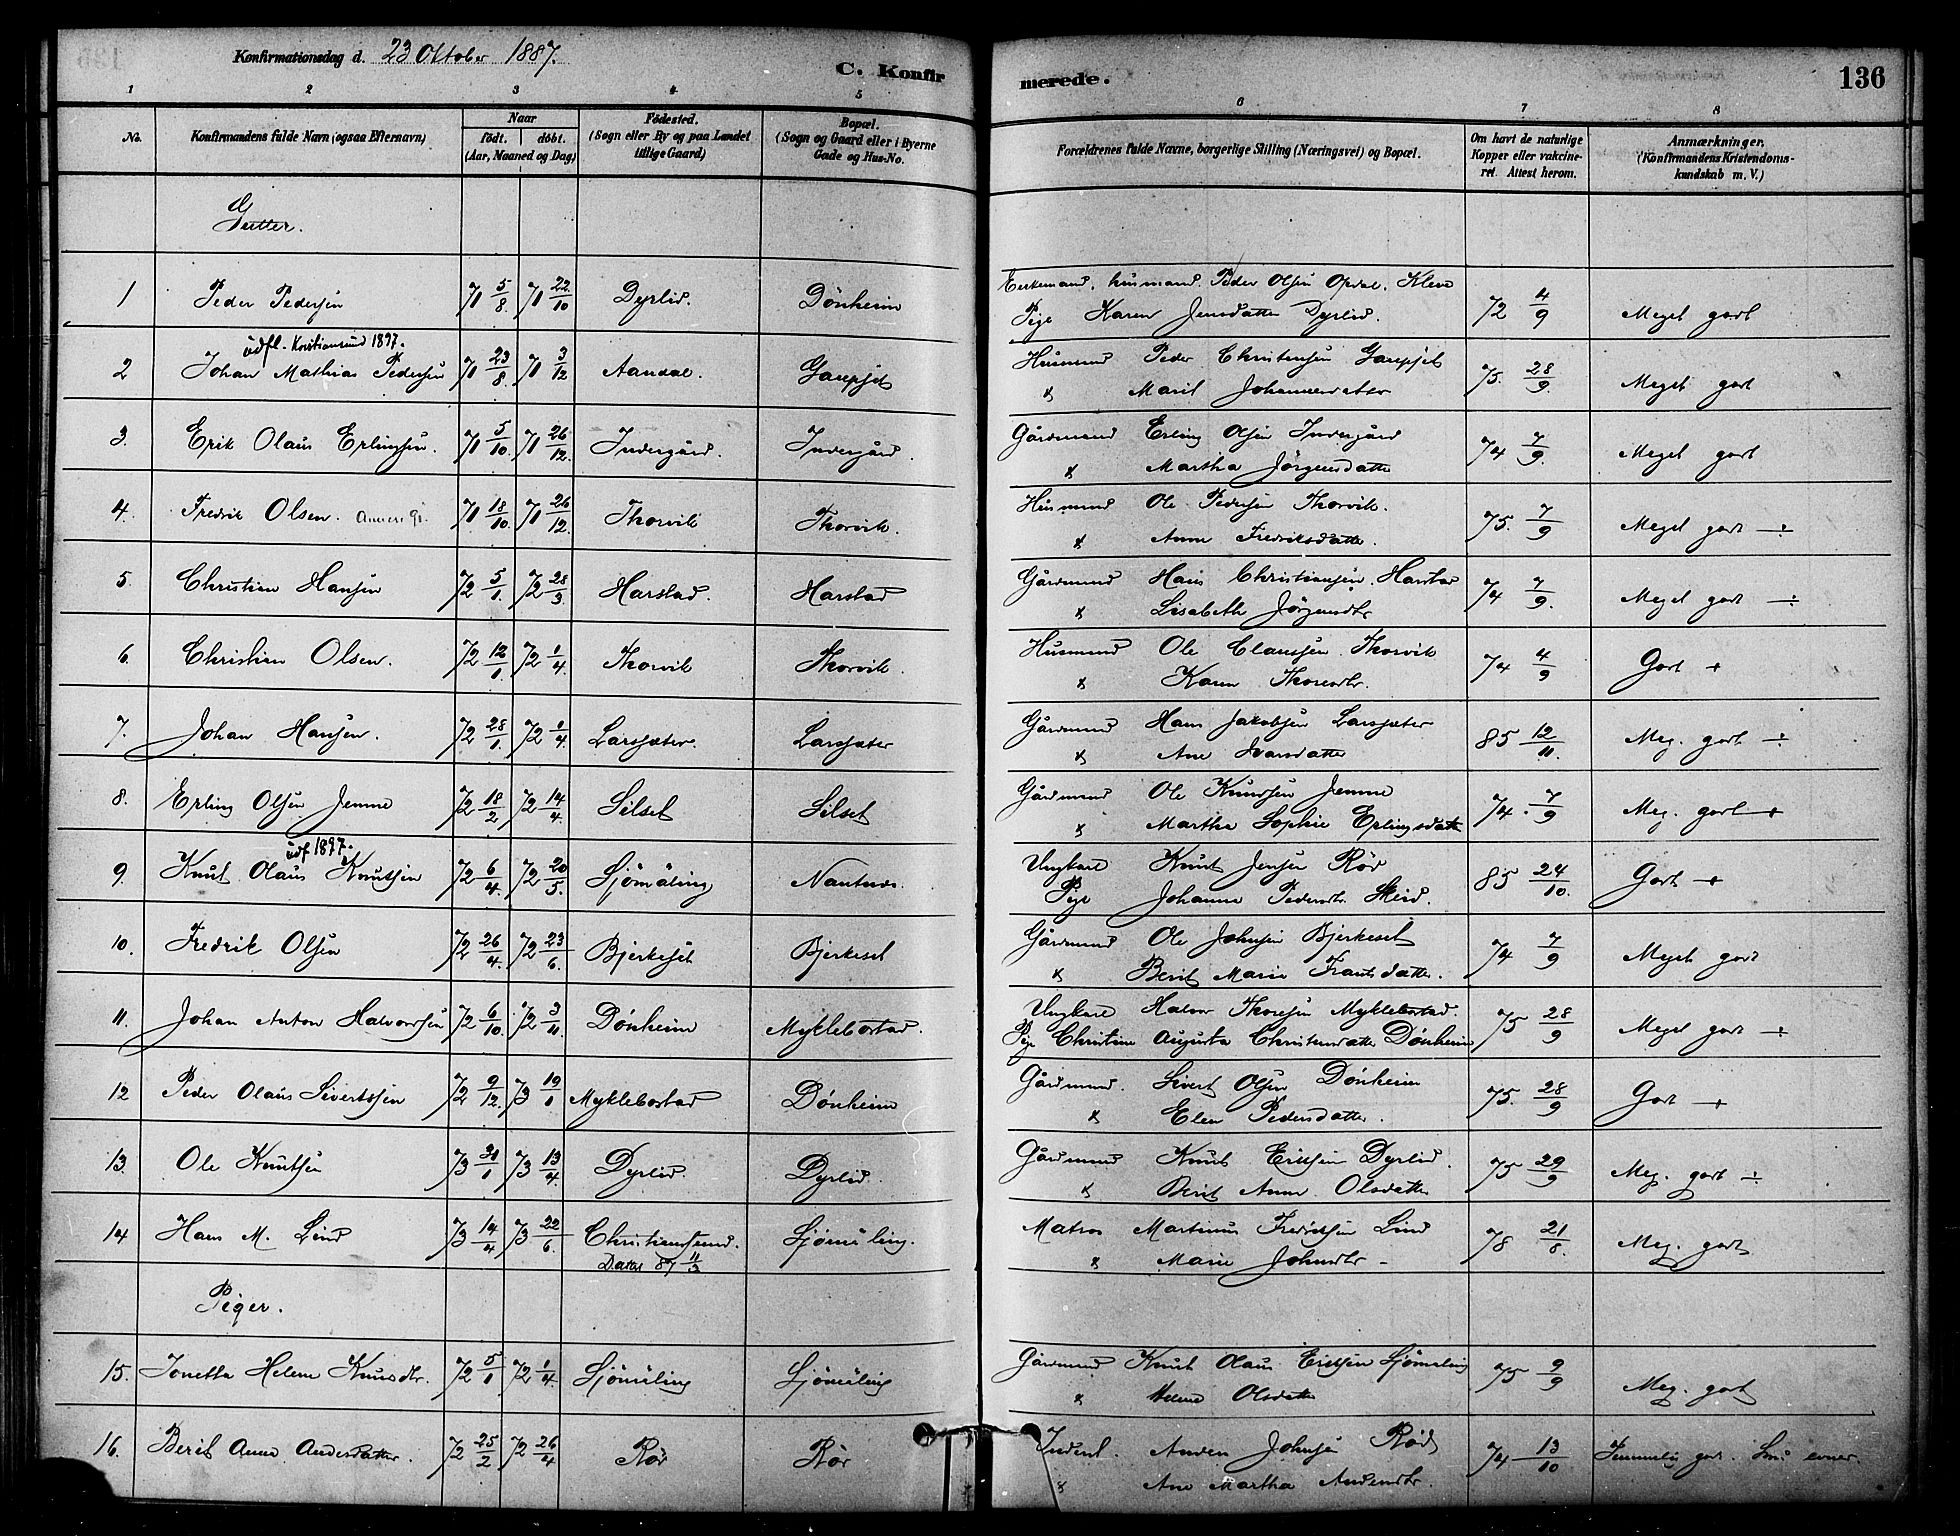 Konfirmationsdag d. 23 Oktober 1887.
C. Konfirmerede.
136
1 2 3 4 5 6 7 8
No.
Konfirmandens fulde Navn (ogsaa Efternavn)
Naar
født. døbt.
(Aar, Maaned og Dag)
Fødested.
(Sogn eller By og paa Landet
tillige Gaard)
Bopæl.
(Sogn og Gaard eller i Byerne
Gade og Hus-No.
Forældrenes fulde Navne, borgerlige Stilling (Næringsvei) og Bopæl.
Om havt de naturlige
Kopper eller vakcine-
ret. Attest herom.
Anmærkninger.
(Konfirmandens Kristendoms-
kundskab m. V.)
Gutter.
1 Peder Pedersen 71 5/8 71 22/10 Dyrlid. Dønheim Enkemand, husmand Peder Olsen Opdal, Kleve
Pige Karen Jensdatter Dyrlid. 72 4/9 Meget godt
udfl. Kristiansund 1897.
2 Johan Mathias Pedersen 71 23/8 71 3/12 Aandal. Garpset Husmand Peder Christensen Garpset
x Marit Johannesdatter 75. 28/9. Meget godt
3. Erik Olaus Erlingsen. 71 5/10. 71 26/12. Indergård. Indergård. Gårdmand Erling Olsen Indergård
x Martha Jørgensdatter 74 7/9. Meget godt
4. Fredrik Olsen. 71 18/10. 71 26/12. Thorvik Thorvik. Husmand Ole Pedersen Thorvik.
x Anne Fredriksdatter. 75. 7/9 Meget godt ÷
5 Christian Hansen 72 5/1. 72 28/3. Harstad. Harstad Gårdmand Hans Christiansen Harstad
x Lisabeth Jørgensdtr 74 7/9. Meget godt ÷
6. Christian Olsen. 72 12/1. 72 1/4. Thorvik Thorvik. Husmand Ole Clausen Thorvik
x Karen Thoresdtr. 74 4/9 Godt +
7. Johan Hansen. 72 28/1. 72 1/4. Larssæter. Larssæter Gårdmand Hans Jakobsen Larssæter
x Ane Ivarsdatter 85 12/11. Meg. godt ÷
8. Erling Olsen Jemne 72 18/2 72 14/4. Silset Silset Gårdmand Ole Knudsen Jemne
x Martha Sophie Erlingsdatter 74. 7/9 Meg. godt +
udf 1897.
9. Knut Olaus Knutsen 72 6/4. 72 20/5. Sjømæling Nastnes. Ungkare Knut Jensen Rød
Pige Johanne Pedersdtr. Skeid. 85 24/10. Godt +
10. Fredrik Olsen 72 26/4. 72 23/6. Bjerkeset Bjerkeset Gårdmand Ole Johnsen Bjerkeset
x Berit Marie Frantsdatter. 74 7/9 Meget godt
11. Johan Anton Halvorsen 72 6/10. 72 3/11. Dønheim Myklebostad. Ungkare Halvor Thoresen Myklebostad.
Pige Christine Augusta Christensdatter Dønheim 75 28/9 Meget godt ÷
12 Peder Olaus Sivertssen 72 9/12. 73 19/1 Myklebostad Dønheim Gårdmand. Sivert Olsen Dønheim
x Elen Pedersdatter. 75. 28/9 Godt +
13. Ole Knutsen 73 31/1 73 13/4 Dyrlid. Dyrlid. Gårdmand Knut Eriksen Dyrlid.
x Berit Anne Olsdatter 75 29/9 Meg. godt ÷
14 Hans M. Lind 73 14/4 73 22/6. Christianssund. Sjømæling. Matros Martinus Fredriksen Lind
Dåbsat. 87 11/3 x Marie Johnsdtr. 78 21/8. Meg. godt
Piger.
15. Jonetta Helene Knudsdtr. 72 5/1 72 1/4. Sjømæling Sjømæling Gårdmand Knut Olaus Eriksen Sjømæling
x Helene Olsdatter 75 9/9 Meg. godt
16. Berit Anne Andersdatter. 72 25/2 72 26/4 Rød Rød Inderst. Anders Johnsen Rød
x Ane Martha Andersdtr. 74 13/10 Temmelig godt. Små evner.